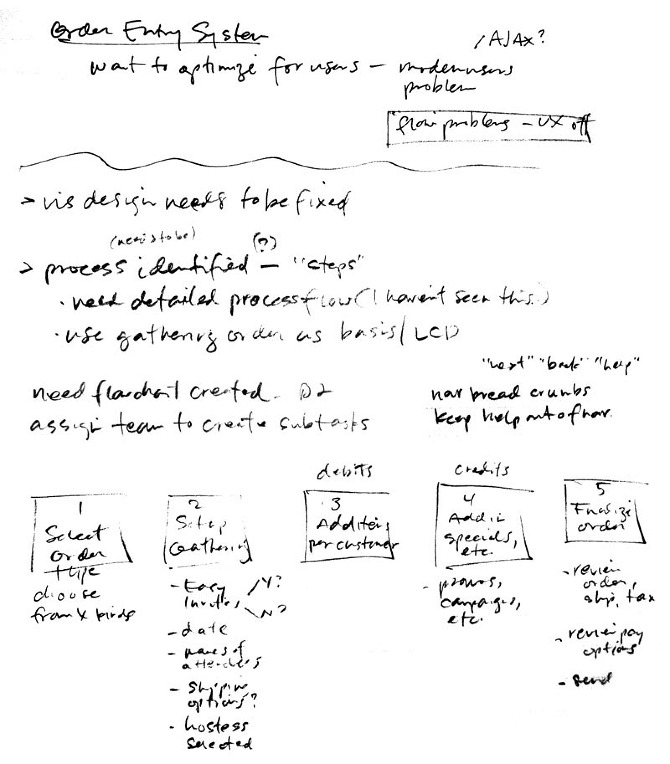 Order Entry System
/AJAX?
want to optimize for users – modern users
problem
flow problems – UX off
> vis design needs to be fixed
(needs to be) (?)
> process identified – "steps"
· need detailed process flow (I haven't seen this.)
· use gathering order as basis/LCD
"next" "back" "help"
need flowchart created. D2
nav bread crumbs
assign team to create subtasks
keep help out of nav.
debits
credits
1
Select
order
type
choose
from X kinds
2
Setup
Gathering
- Easy /Y?
Invites, \N?
- date
- names of
attendees
- shipping
options?
- hostess
selected
3
Add items
per customer
4
Add in
specials,
etc.
- promos,
campaigns,
etc.
5
Finalize
order
- review
order,
ship, tax
- review pay
options
- send